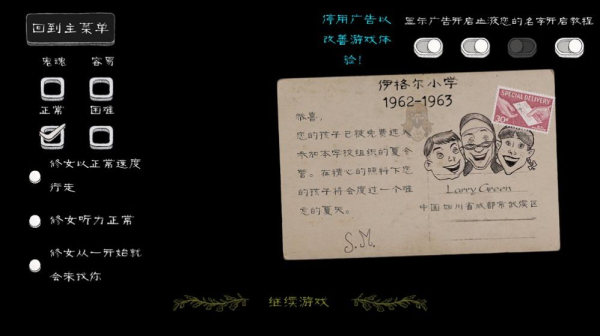 回到主菜单
鬼魂 容易
正常 困难
修女以正常速度
行走
修女听力正常
修女从一开始就
会来找你
停用广告以
改善游戏体
验!
显示广告开启血液您的名字开启教程
伊格尔小学
1962-1963
SPECIAL DELIVERY
20¢
恭喜,
您的孩子已被免费选入
参加本学校组织的夏令
营。在精心的照料下您
的孩子将会度过一个难
忘的夏天。
S.M.
Larry Green
中国四川省成都市武侯区
继续游戏